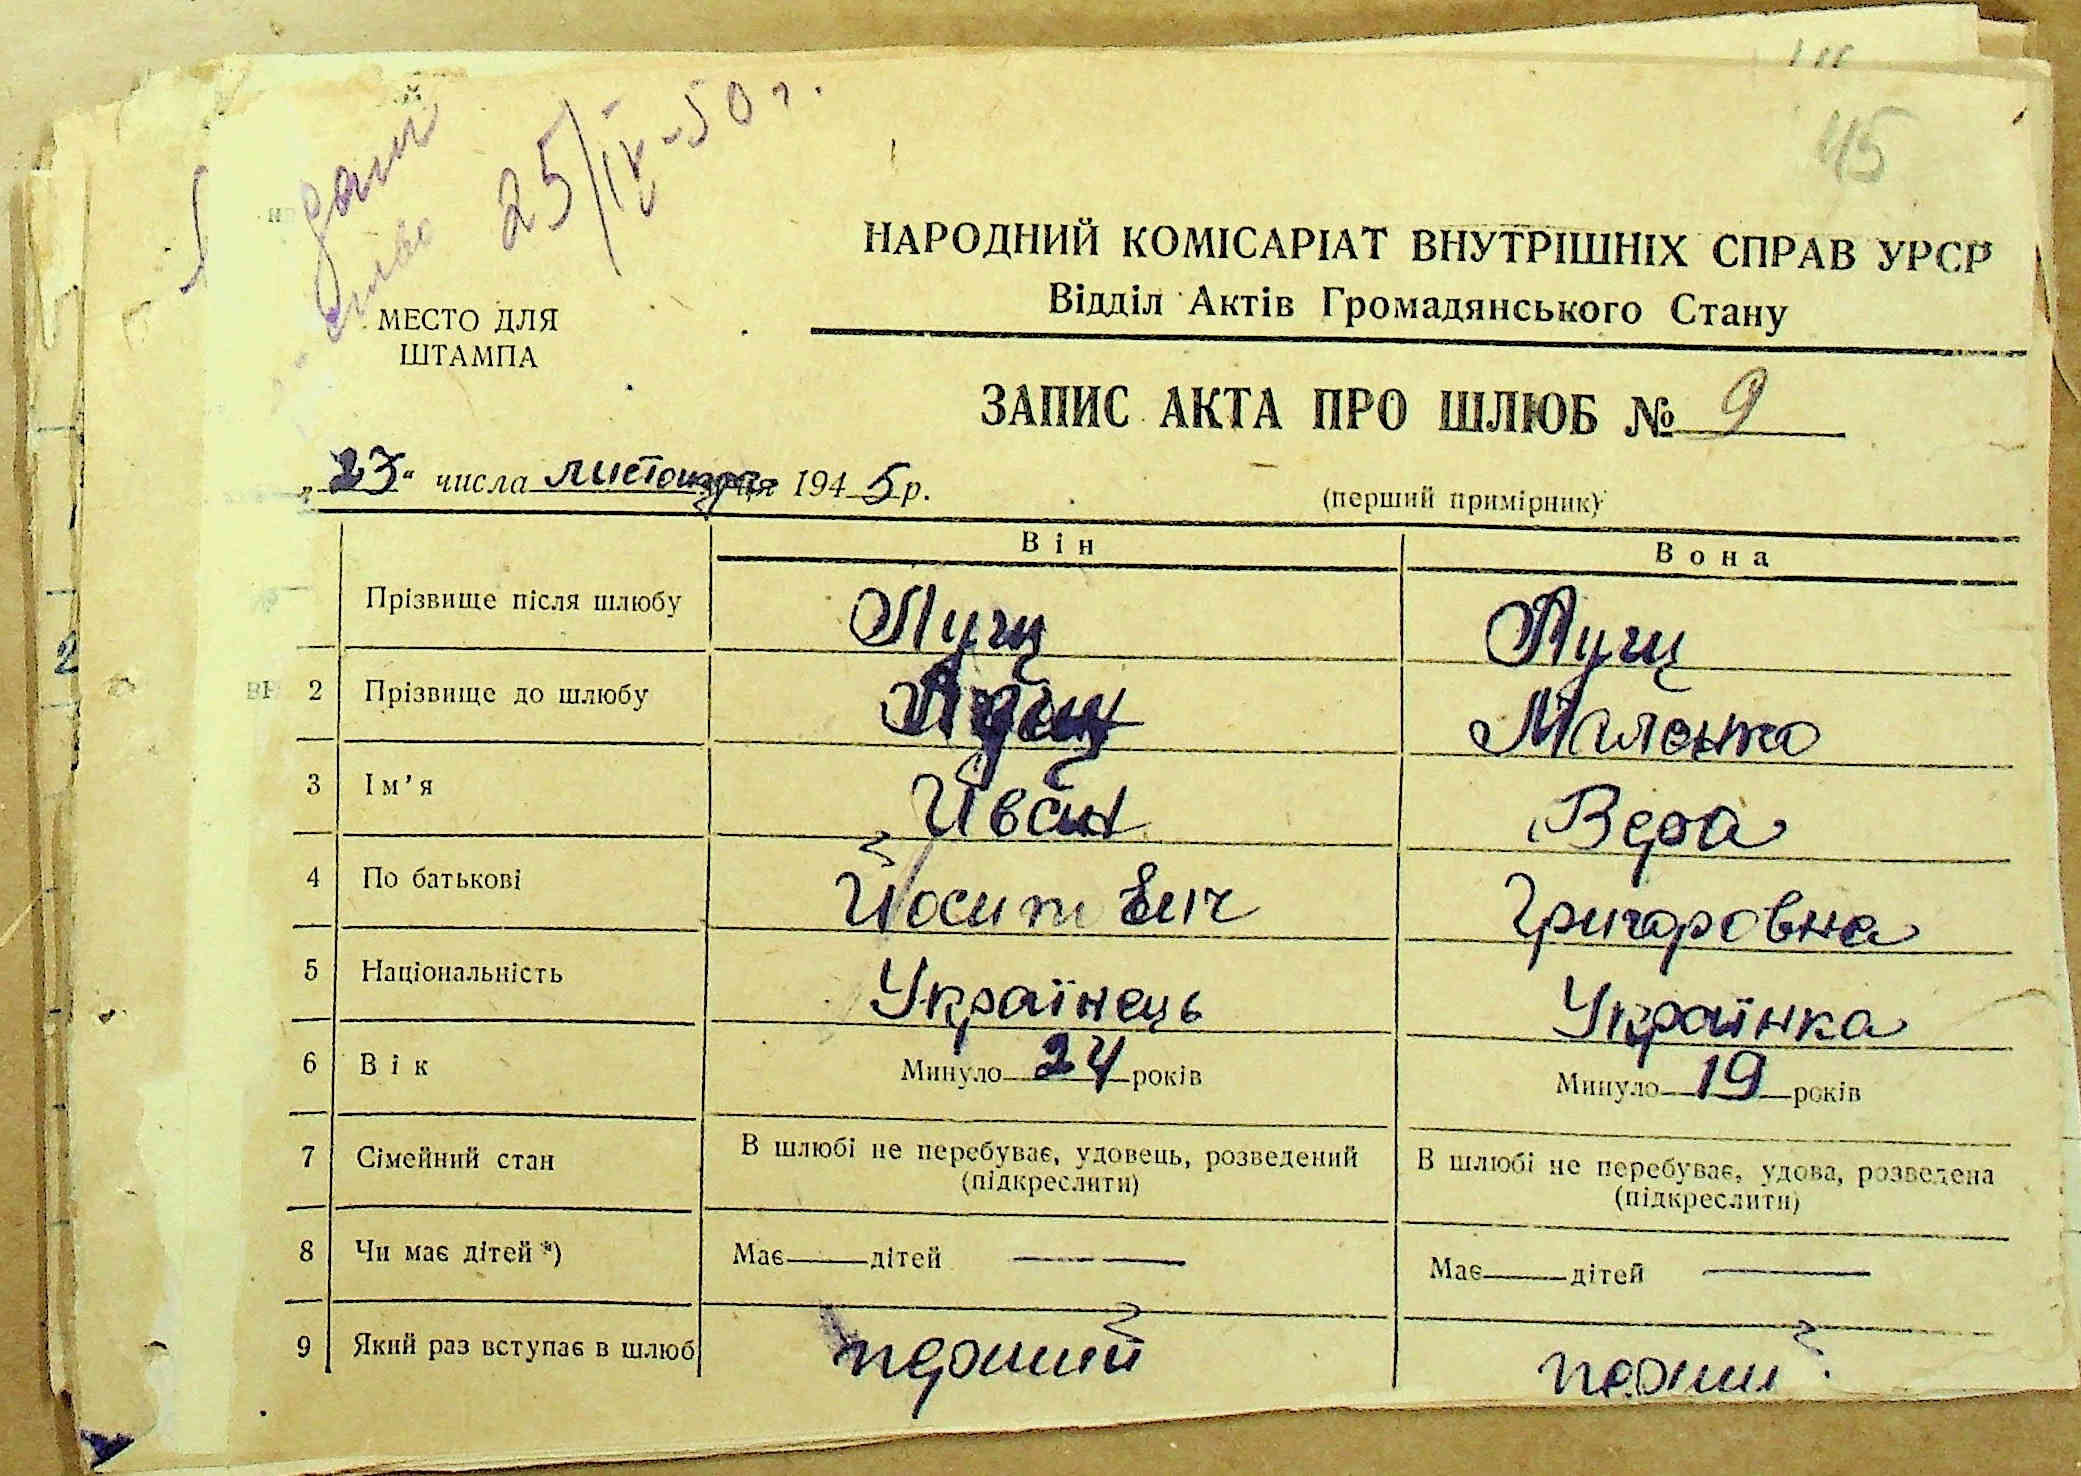 25/IV-50 г.
45
НАРОДНИЙ КОМІСАРІАТ ВНУТРІШНІХ СПРАВ УРСР
Відділ Актів Громадянського Стану
МЕСТО ДЛЯ
ШТАМПА
ЗАПИС АКТА ПРО ШЛЮБ № 9
„23“ числа листопада 1945 р.
(перший примірник)
Він Вона
Прізвище після шлюбу Пущ Пущ
2 Прізвище до шлюбу Міленко
3 Ім'я Йван Вера
4 По батькові Йосипович Григоровна
5 Національність Українець Українка
6 Вік Минуло 24 років Минуло 19 років
7 Сімейний стан В шлюбі не перебуває, удовець, розведений (підкреслити) В шлюбі не перебуває, удова, розведена (підкреслити)
8 Чи має дітей *) Має — дітей — Має — дітей —
9 Який раз вступає в шлюб перший перший